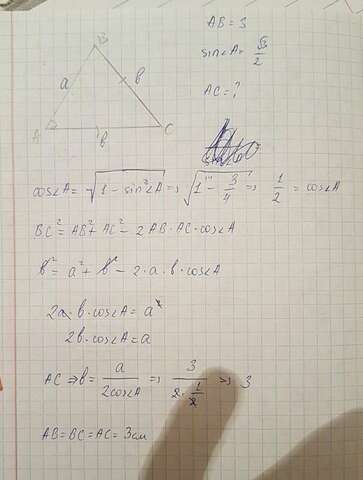 AB = 3
sin∠A = √3/2
AC = ?
B
a
b
A
b
C
cos∠A = √1 - sin²∠A => √1 - 3/4 => 1/2 = cos∠A
BC² = AB² + AC² - 2 AB · AC · cos∠A
b² = a² + b² - 2 · a · b · cos∠A
2a · b · cos∠A = a²
2b · cos∠A = a
AC => b = a/2cos∠A => 3/2 · 1/2 => 3
AB = BC = AC = 3см